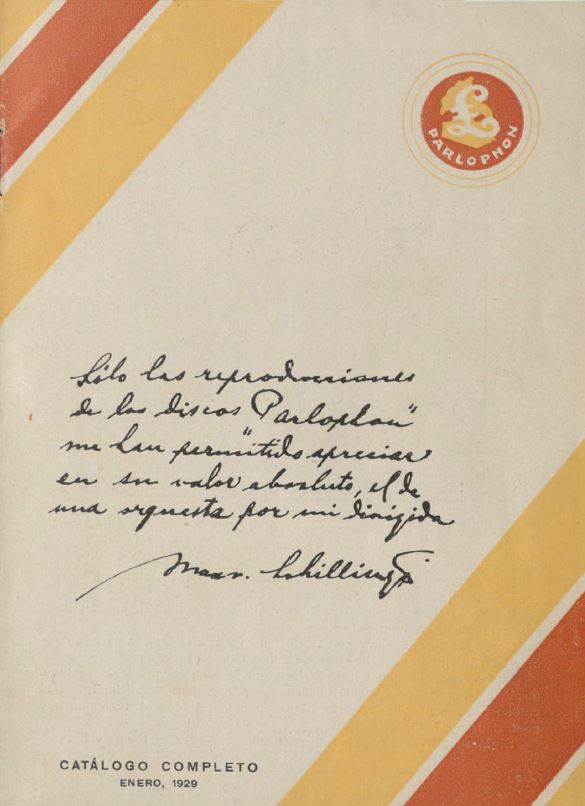 £
PARLOPHON
Sólo las reproducciones
de los discos "Parlophon"
me han permitido apreciar
en su valor absoluto, el de
una orquesta por mi dirigida
Max v. Schillings
CATÁLOGO COMPLETO
ENERO, 1929